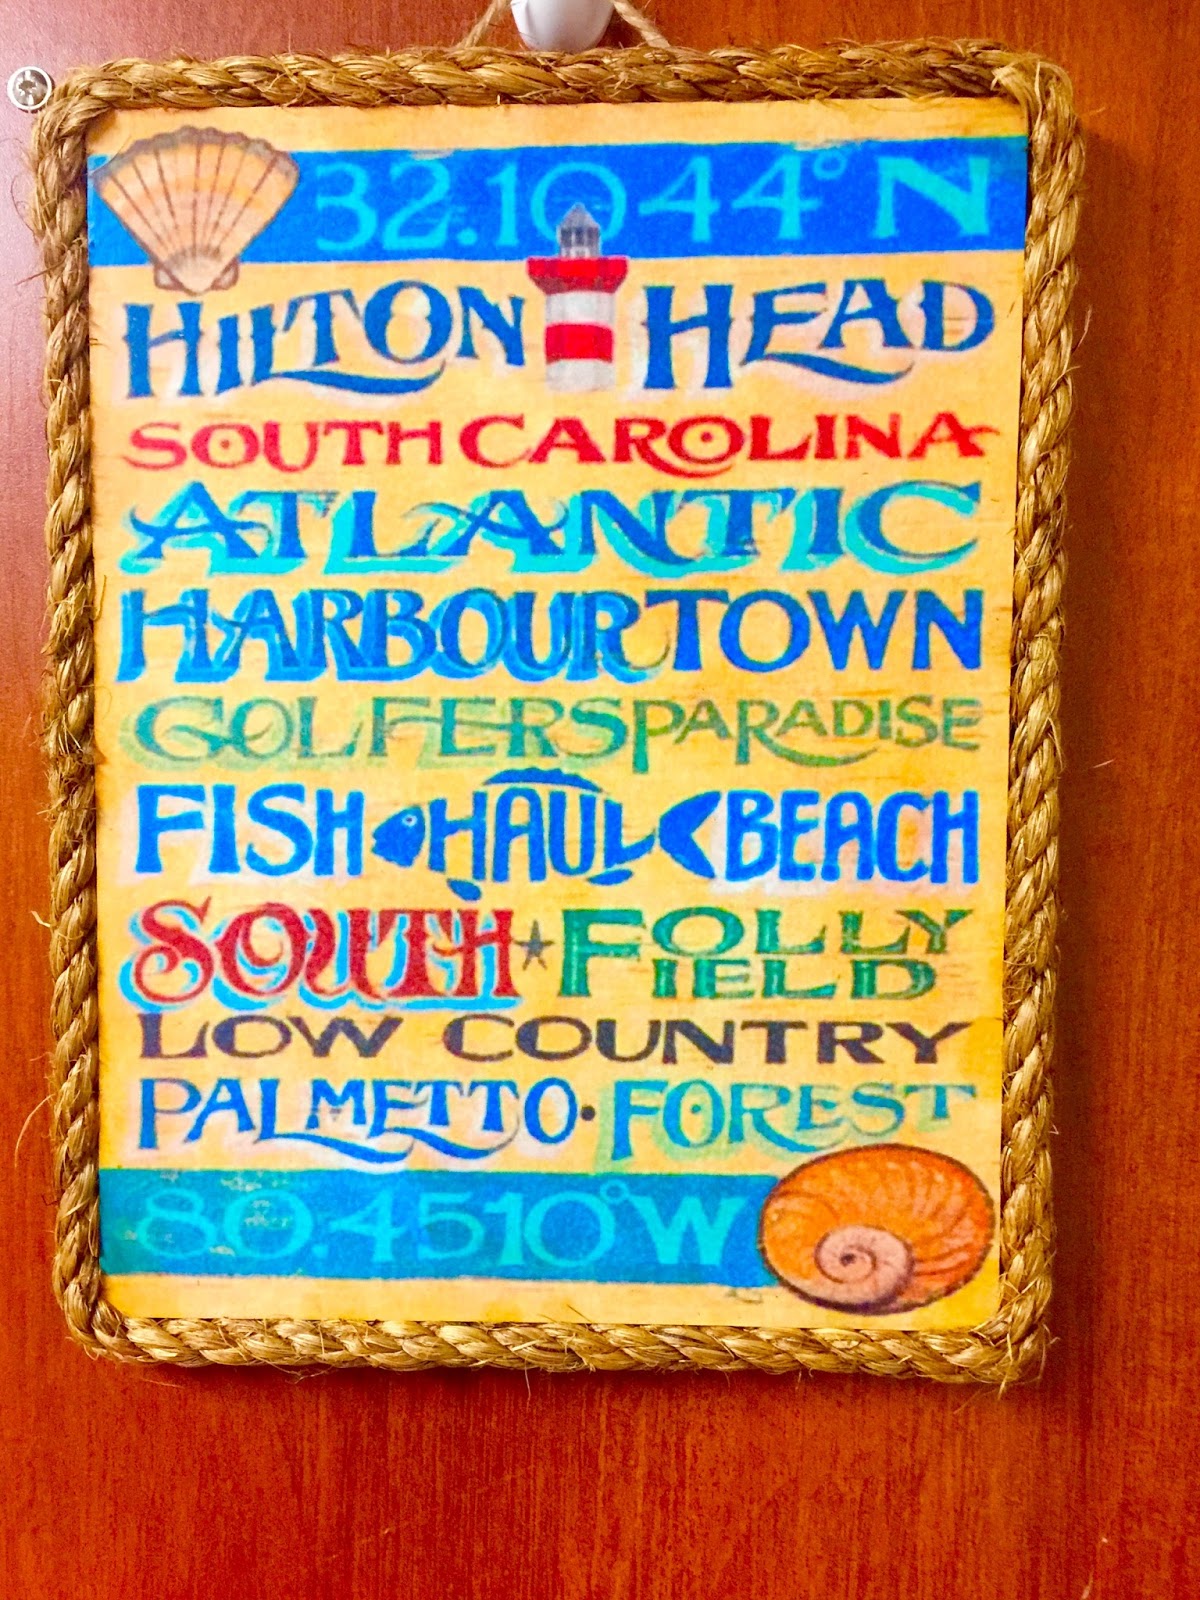 32.1044° N
HILTON HEAD
SOUTH CAROLINA
ATLANTIC
HARBOUR TOWN
GOLFERS PARADISE
FISH HAUL BEACH
SOUTH FOLLY FIELD
LOW COUNTRY
PALMETTO · FOREST
80.4510° W